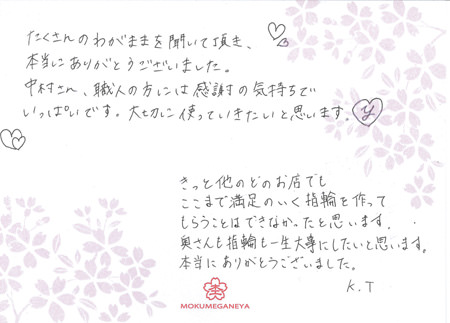 たくさんのわがままを聞いて頂き、
本当にありがとうございました。
中村さん、職人の方には感謝の気持ちで
いっぱいです。大切に使っていきたいと思います。
y
きっと他のどのお店でも
ここまで満足のいく指輪を作って
もらうことはできなかったと思います。
奥さんも指輪も一生大事にしたいと思います。
本当にありがとうございました。
K.T
MOKUMEGANEYA